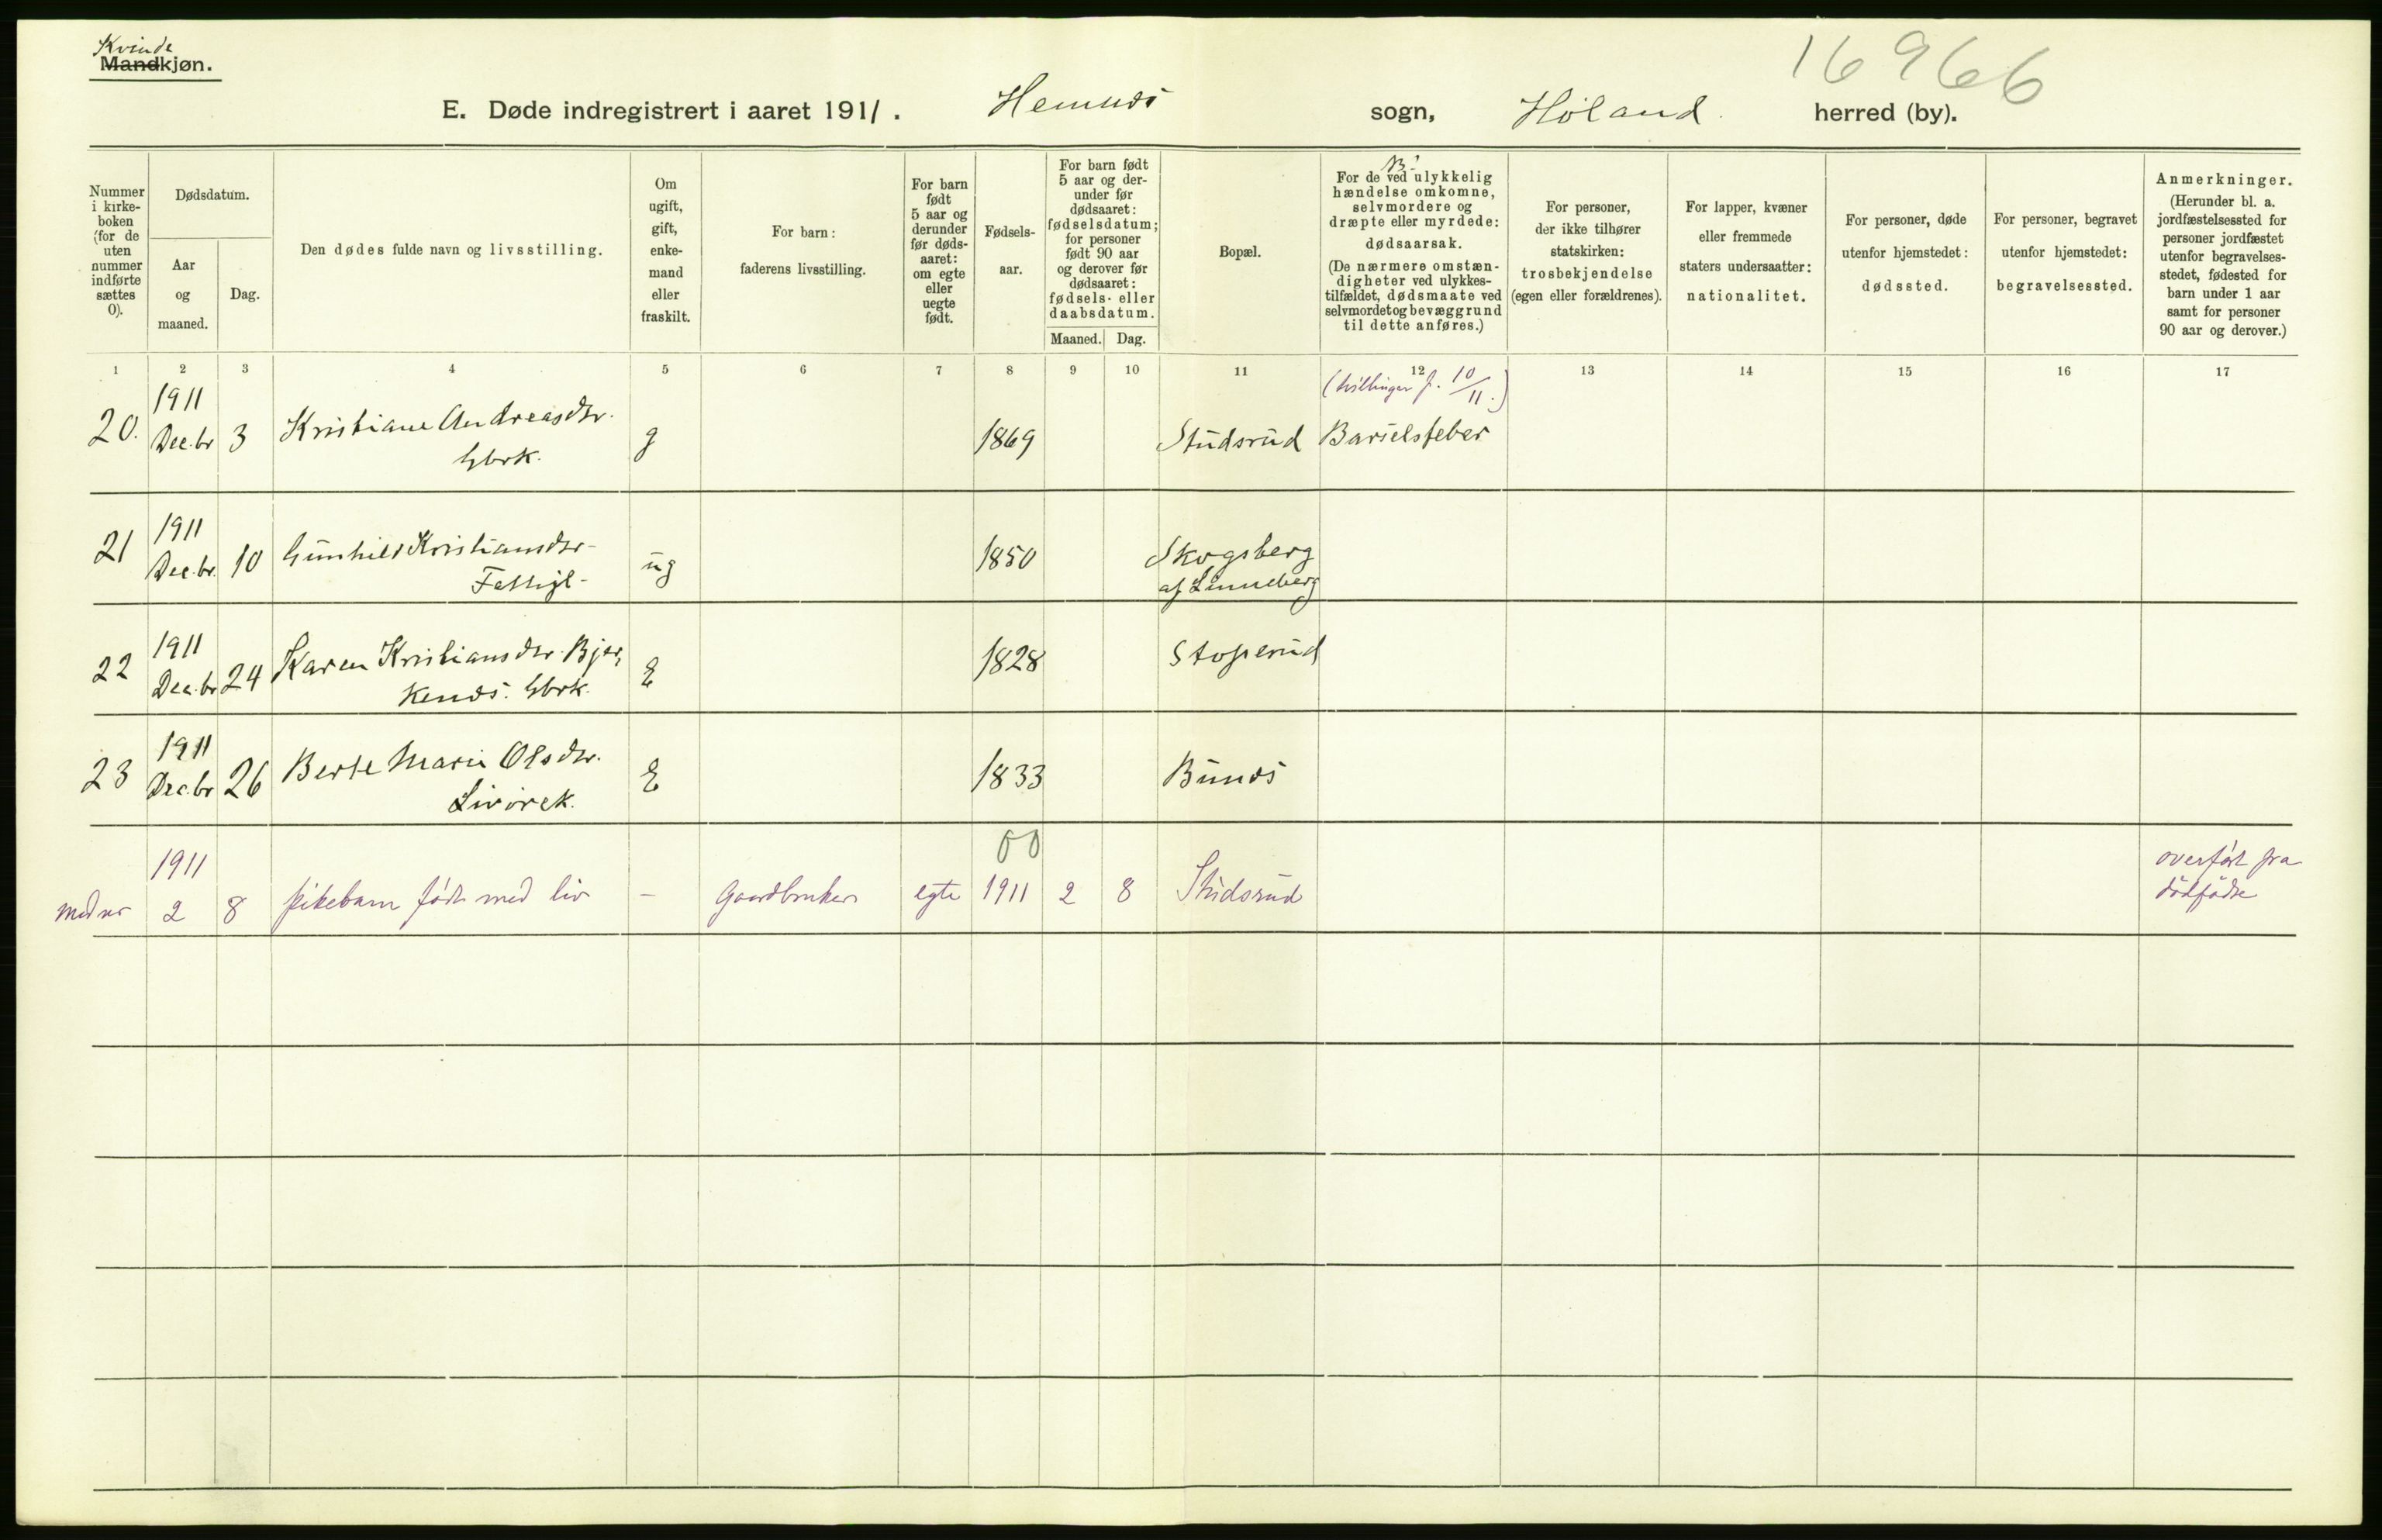 Kvinde
Mandkjøn.
16966
E. Døde indregistrert i aaret 1911. Hemnes sogn, Høland herred (by).
Nummer i kirke-boken (for de uten nummer indførte sættes 0).
Dødsdatum.
Aar og maaned.
Dag.
Den dødes fulde navn og livsstilling.
Om ugift, gift, enke-mand eller fraskilt.
For barn: faderens livsstilling.
For barn født 5 aar og derunder før døds-aaret: om egte eller uegte født.
Fødsels-aar.
For barn født 5 aar og der-under før dødsaaret: fødselsdatum; for personer født 90 aar og derover før dødsaaret: fødsels- eller daabsdatum.
Maaned. Dag.
Bopæl.
B.
For de ved ulykkelig hændelse omkomne, selvmordere og dræpte eller myrdede: dødsaarsak. (De nærmere omstæn-digheter ved ulykkes-tilfældet, dødsmaate ved selvmordet og bevæggrund til dette anføres.)
For personer, der ikke tilhører statskirken: trosbekjendelse (egen eller forældrenes).
For lapper, kvæner eller fremmede staters undersaatter: nationalitet.
For personer, døde utenfor hjemstedet: dødssted.
For personer, begravet utenfor hjemstedet: begravelsessted.
Anmerkninger. (Herunder bl. a. jordfæstelsessted for personer jordfæstet utenfor begravelses-stedet, fødested for barn under 1 aar samt for personer 90 aar og derover.)
1 2 3 4 5 6 7 8 9 10 11 12 13 14 15 16 17
(tvillinger f. 10/11.)
20. 1911 Dec.br 3 Kristiane Andreasdtr. g 1869 Studsrud Barselsfeber
Gbrk.
21 1911 Dec.br. 10 Gunhild Kristiansdtr- ug 1850 Skogsberg
Fattigl- af Linneberg
22 1911 Dec.br 24 Karen Kristiansdtr. Bjer, E 1828 Stoperud
kenes. Gbrk.
23 1911 Dec.br 26 Berte Marie Olsdtr. E 1833 Bunes
Livørek.
00
1911 overført fra
2 8 pikebarn født med liv - Gaardbruker egte 1911 2 8 Studsrud dødfødte